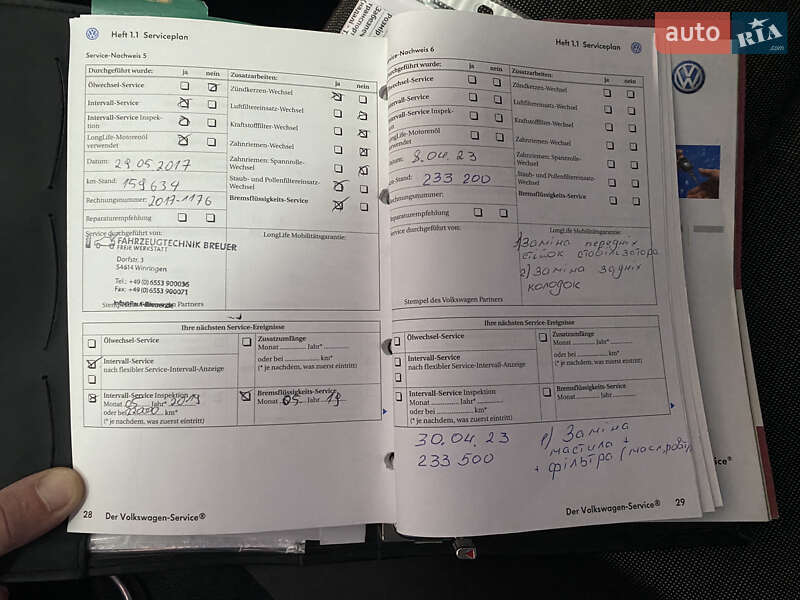 Heft 1.1 Serviceplan
Service-Nachweis 5
Durchgeführt wurde:
ja
nein
Zusatzarbeiten:
ja
nein
Ölwechsel-Service
Zündkerzen-Wechsel
Intervall-Service
Luftfiltereinsatz-Wechsel
Intervall-Service Inspek-
tion
Kraftstofffilter-Wechsel
LongLife-Motorenöl
verwendet
Zahnriemen-Wechsel
Datum: 29.05.2017
Zahnriemen: Spannrolle-
Wechsel
km-Stand: 159 634
Staub- und Pollenfiltereinsatz-
Wechsel
Rechnungsnummer: 2017-1176
Bremsflüssigkeits-Service
Reparaturempfehlung
Service durchgeführt von:
LongLife Mobilitätsgarantie:
FAHRZEUGTECHNIK BREUER
FREIE WERKSTATT
Dorfstr. 3
54614 Winringen
Tel.: +49 (0) 6553 900036
Fax: +49 (0) 6553 900071
Partners
Ihre nächsten Service-Ereignisse
Ölwechsel-Service
Zusatzumfänge
Monat Jahr*
oder bei km*
(* je nachdem, was zuerst eintritt)
Intervall-Service
nach flexibler Service-Intervall-Anzeige
Intervall-Service Inspektion
Monat 05 Jahr* 2019
oder bei km*
(* je nachdem, was zuerst eintritt)
Bremsflüssigkeits-Service
Monat 05 Jahr 19
28 Der Volkswagen-Service®
Heft 1.1 Serviceplan
Service-Nachweis 6
Durchgeführt wurde:
ja
nein
Zusatzarbeiten:
ja
nein
Ölwechsel-Service
Zündkerzen-Wechsel
Intervall-Service
Luftfiltereinsatz-Wechsel
Intervall-Service Inspek-
tion
Kraftstofffilter-Wechsel
LongLife-Motorenöl
verwendet
Zahnriemen-Wechsel
Datum: 8.04.23
Zahnriemen: Spannrolle-
Wechsel
km-Stand: 233 200
Staub- und Pollenfiltereinsatz-
Wechsel
Rechnungsnummer:
Bremsflüssigkeits-Service
Reparaturempfehlung
Service durchgeführt von:
LongLife Mobilitätsgarantie:
1) Заміна передніх
стійок стабілізатора
2) Заміна задніх
колодок
Stempel des Volkswagen Partners
Ihre nächsten Service-Ereignisse
Ölwechsel-Service
Zusatzumfänge
Monat Jahr*
oder bei km*
(* je nachdem, was zuerst eintritt)
Intervall-Service
nach flexibler Service-Intervall-Anzeige
Intervall-Service Inspektion
Monat Jahr*
oder bei km*
(* je nachdem, was zuerst eintritt)
Bremsflüssigkeits-Service
Monat Jahr
30.04.23
233 500
1) Заміна
мастила +
+ фільтра
Der Volkswagen-Service® 29
auto RIA
.com